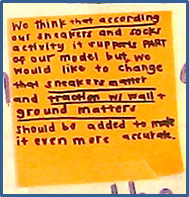 We think that according
our sneakers and socks
activity it supports PART
of our model but we
would like to change
that sneakers matter
and traction w/ wall +
ground matters
should be added to make
it even more accurate.